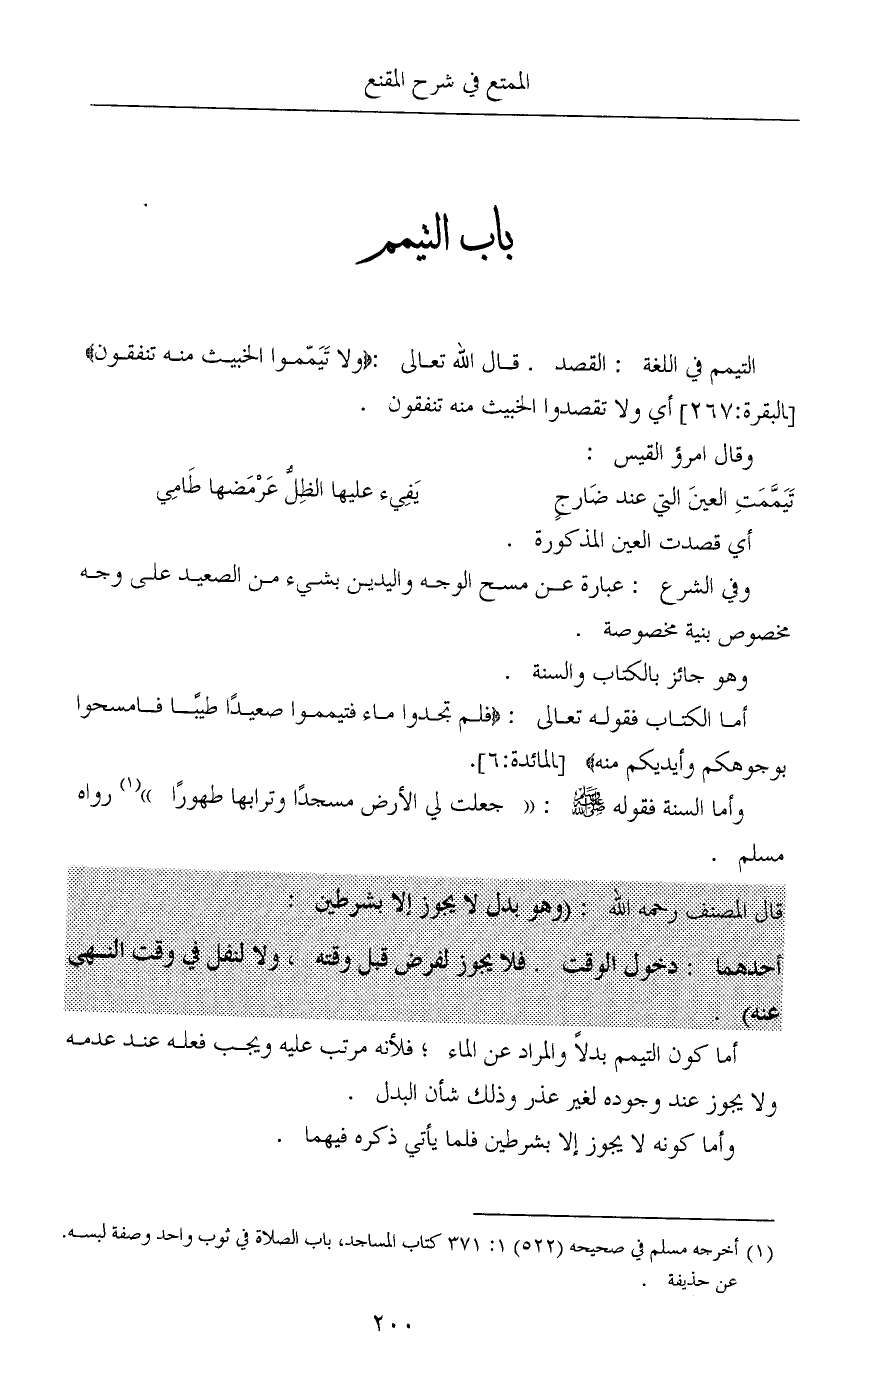 الممتع في شرح المقنع
باب التيمم
التيمم في اللغة : القصد . قال الله تعالى :﴿ولا تَيَمّموا الخبيث منه تنفقون﴾
[البقرة:٢٦٧] أي ولا تقصدوا الخبيث منه تنفقون .
وقال امرؤ القيس :
تَيَمَّمَتِ العينَ التي عند ضَارجٍ يَفِيء عليها الظِلُّ عَرْمَضها طَامِي
أي قصدت العين المذكورة .
وفي الشرع : عبارة عن مسح الوجه واليدين بشيء من الصعيد على وجه
مخصوص بنية مخصوصة .
وهو جائز بالكتاب والسنة .
أما الكتاب فقوله تعالى : ﴿فلم تجدوا ماء فتيمموا صعيدًا طيبًا فامسحوا
بوجوهكم وأيديكم منه﴾ [المائدة:٦].
وأما السنة فقوله ﷺ : « جعلت لي الأرض مسجدًا وترابها طهورًا »(١) رواه
مسلم .
قال المصنف رحمه الله : (وهو بدل لا يجوز إلا بشرطين :
أحدهما : دخول الوقت . فلا يجوز لفرض قبل وقته ، ولا لنفل في وقت النهي
عنه) .
أما كون التيمم بدلاً والمراد عن الماء ؛ فلأنه مرتب عليه ويجب فعله عند عدمه
ولا يجوز عند وجوده لغير عذر وذلك شأن البدل .
وأما كونه لا يجوز إلا بشرطين فلما يأتي ذكره فيهما .
(١) أخرجه مسلم في صحيحه (٥٢٢) ١: ٣٧١ كتاب المساجد، باب الصلاة في ثوب واحد وصفة لبسه.
عن حذيفة .
٢٠٠